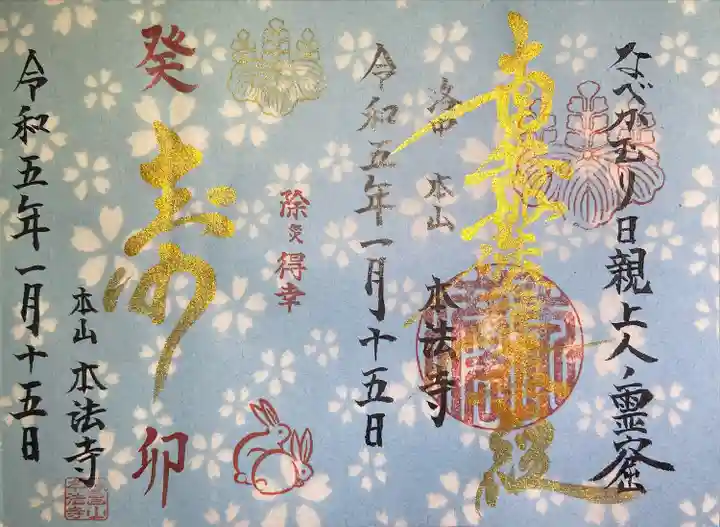 なべかむり日親上人ノ霊窟
南無妙法蓮華経
洛中 本山 本法寺
令和五年一月十五日
除災得幸
癸
寿
卯
本山 本法寺
令和五年一月十五日